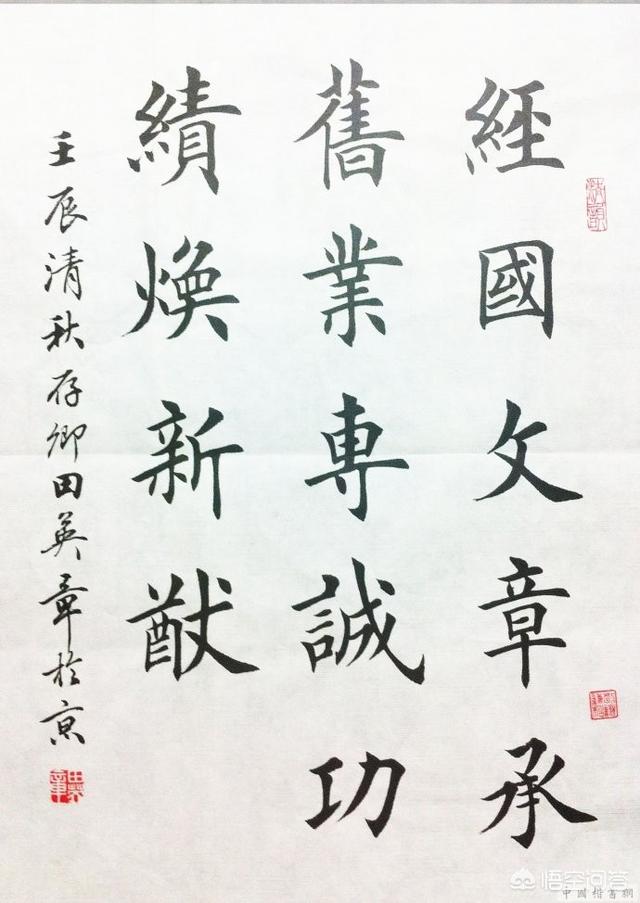 經國文章承
舊業專誠功
績煥新猷
壬辰清秋存卿田英章於京
田英章
悟空问答
中国楷書網